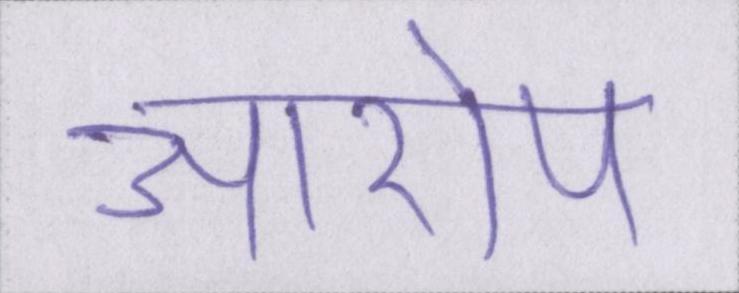 आरोप